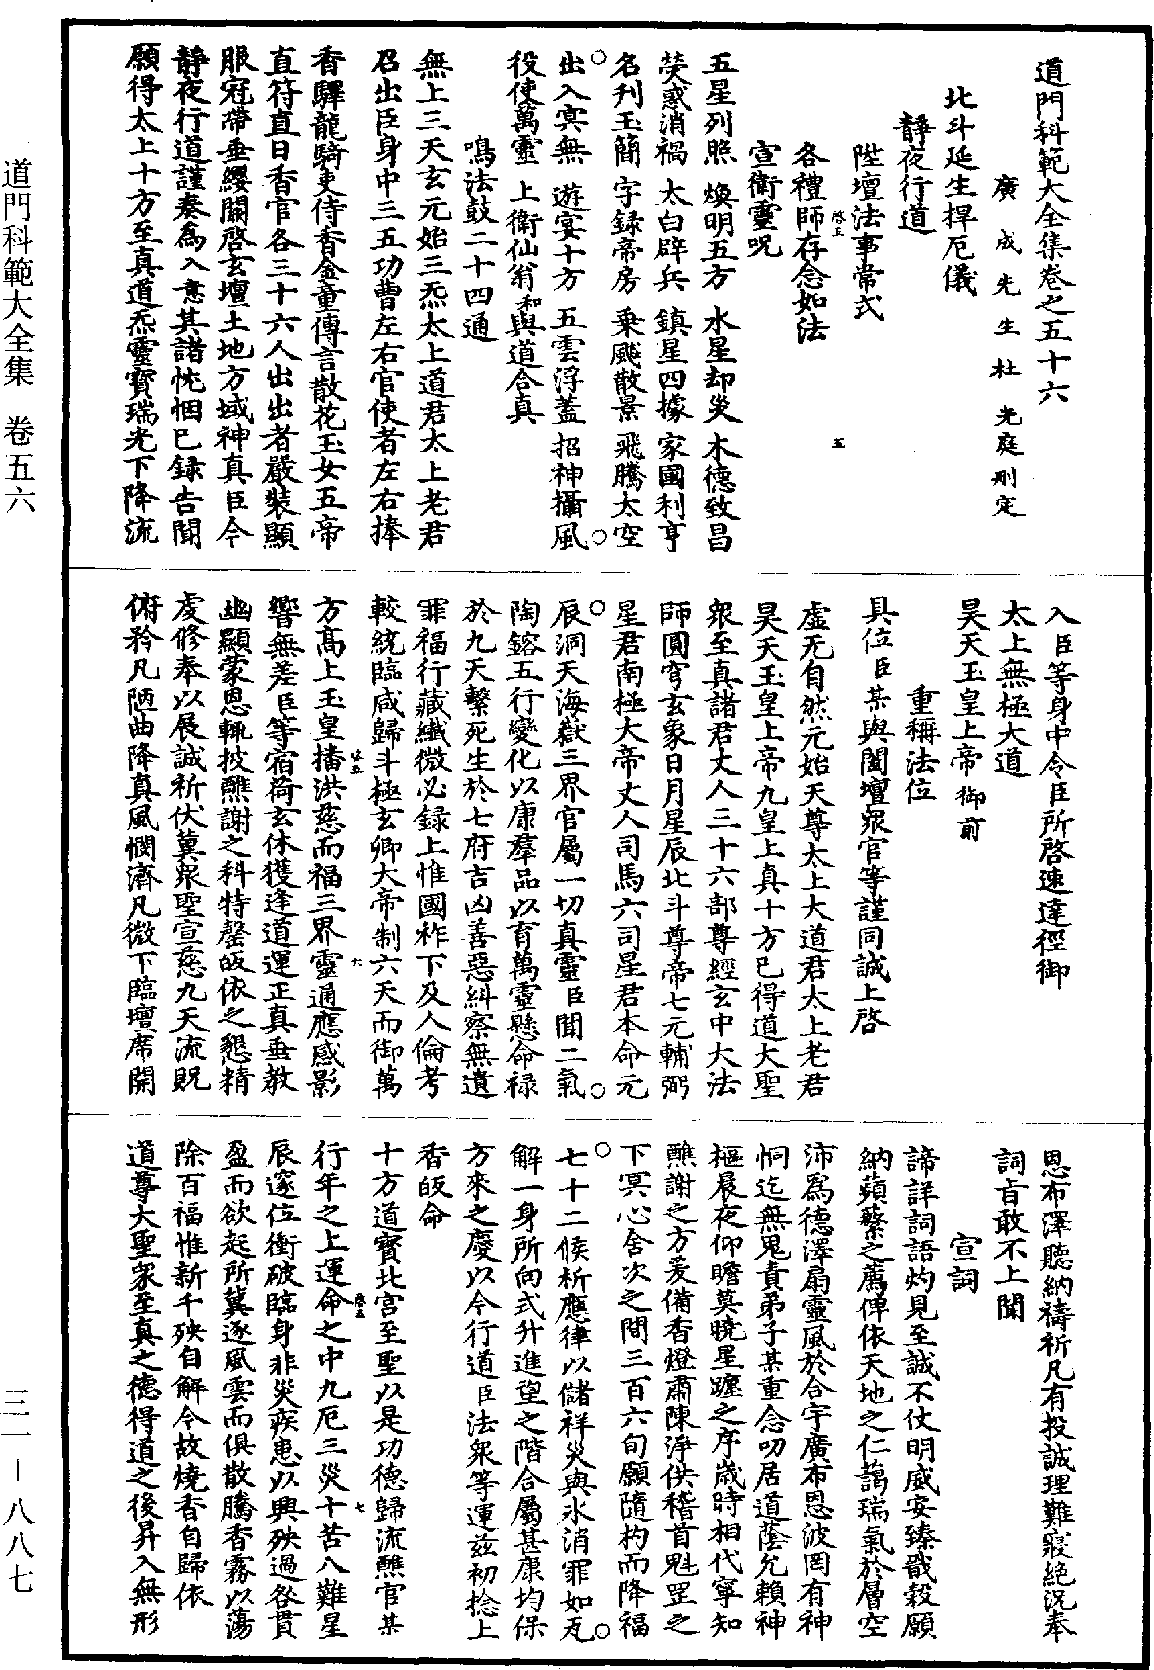 道門科範大全集卷之五十六
廣成先生杜光庭刪定
北斗延生捍厄儀
靜夜行道
陞壇法事常式
各禮師存念如法
宣衛靈呪
五星列照 煥明五方 水星却災 木德致昌
熒惑消禍 太白辟兵 鎮星四據 家國利亨
名刋玉簡 字録帝房 乗飈散景 飛騰太空
出入㝠無 遊宴十方 五雲浮蓋 招神攝風
役使萬靈 上衛仙翁和與道合真
鳴法鼓二十四通
無上三天玄元始三炁太上道君太上老君
召出臣身中三五功曹左右官使者左右捧
香驛龍騎吏侍香金童傳言散花玉女五帝
直符直日香官各三十六人出出者嚴裝顯
服冠帶垂纓關啓玄壇土地方域神真臣今
靜夜行道謹奏為入意其諸忱悃已録告聞
願得太上十方至真道炁靈寶瑞光下降流
入臣等身中令臣所啓速達徑御
太上無極大道
昊天玉皇上帝御前
重稱法位
具位臣某與闔壇衆官等謹同誠上啓
虛无自然元始天尊太上大道君太上老君
昊天玉皇上帝九皇上真十方已得道大聖
衆至真諸君丈人三十六部尊經玄中大法
師圓穹玄象日月星辰北斗尊帝七元輔弼
星君南極大帝丈人司馬六司星君本命元
辰洞天海嶽三界官屬一切真靈臣聞二氣
陶鎔五行變化以康羣品以育萬靈懸命禄
於九天繫死生於七府吉凶善惡糾察無遺
罪福行藏纎微必録上惟國祚下及人倫考
較統臨咸歸斗極玄卿大帝制六天而御萬
方高上玉皇播洪慈而福三界靈通應感影
響無差臣等宿荷玄休獲逢道運正真垂教
幽顯蒙恩輙披醮謝之科特罄皈依之懇精
虔修奉以展誠祈伏冀衆聖宣慈九天流貺
俯矜凡陋曲降真風憫濟凡微下臨壇席開
恩布澤聽納禱祈凡有投誠理難寢絶况奉
詞㫖敢不上聞
宣詞
諦詳詞語灼見至誠不仗明威安臻戩穀願
納蘋蘩之薦俾依天地之仁藹瑞氣於層空
沛為德澤扇靈風於合宇廣布恩波罔有神
恫迄無鬼責弟子某重念叨居道蔭允賴神
樞晨夜仰瞻莫曉星躔之序歲時相代寧知
醮謝之方爰備香燈肅陳淨供稽首魁罡之
下冥心舍次之間三百六旬願隨杓而降福
七十二候祈應律以儲祥災與氷消罪如瓦
解一身所向式升進望之階合屬甚康均保
方來之慶以今行道臣法衆等運兹初捻上
香皈命
十方道寳北宫至聖以是功德歸流醮官某
行年之上運命之中九厄三災十苦八難星
辰邃位衝破臨身非災疾患以興殃過咎貫
盈而欲起所冀逐風雲而俱散騰香霧以蕩
除百福惟新千殃自解今故燒香自歸依
道尊大聖衆至真之德得道之後昇入無形
道門科範大全集 卷五六
三一－八八七